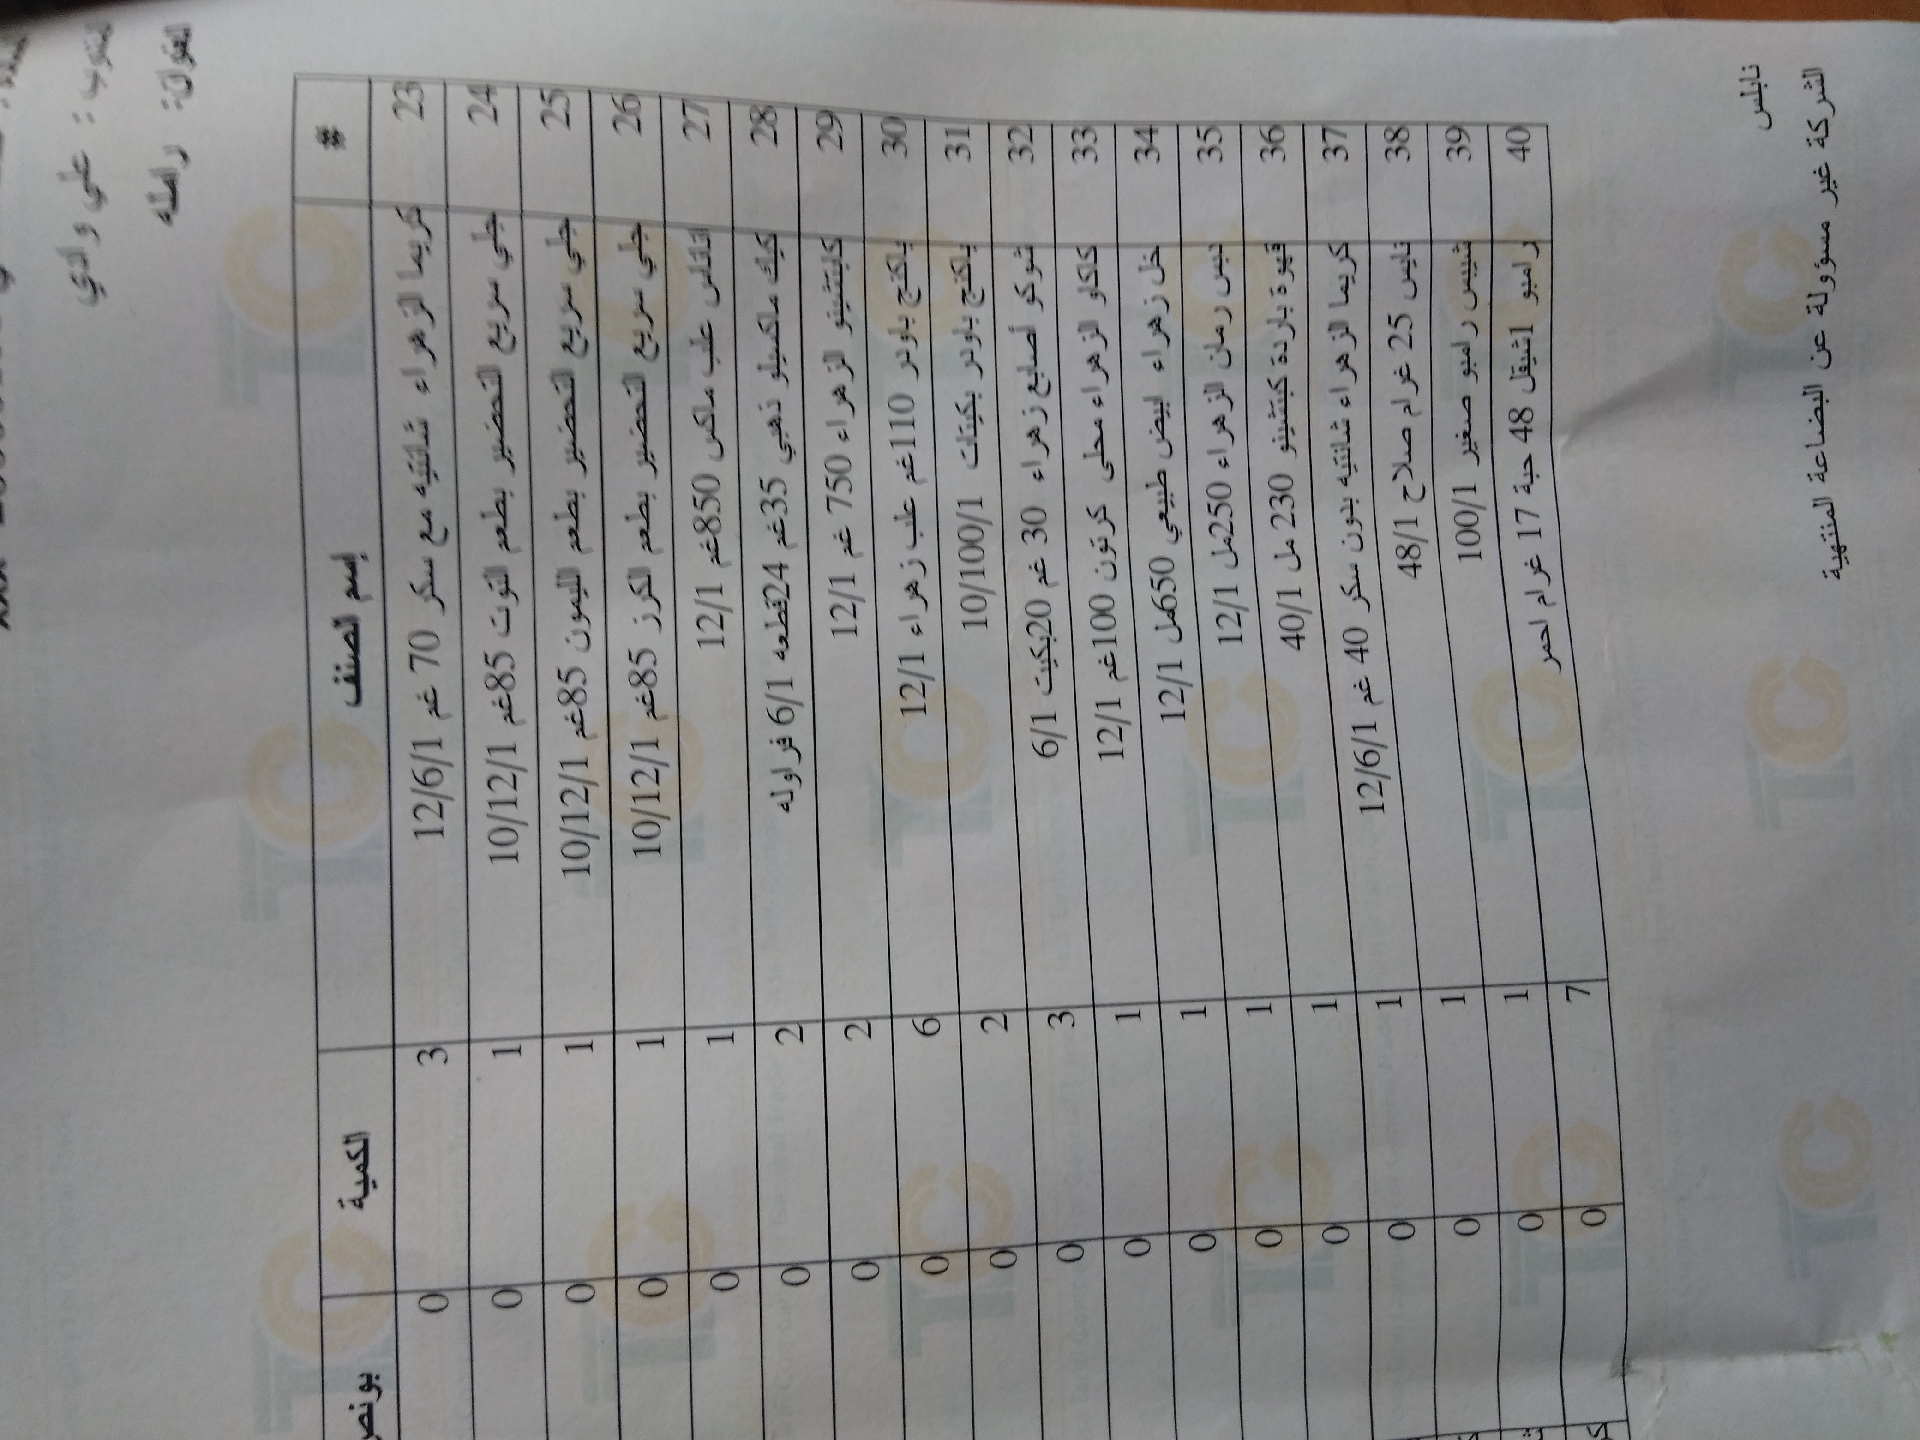 المندوب : علي وادي
العنوان: رامالله
# إسم الصنف الكمية بونص
23 كريما الزهراء شانتيه مع سكر 70 غم 12/6/1 3 0
24 جلي سريع التحضير بطعم التوت 85غم 10/12/1 1 0
25 جلي سريع التحضير بطعم الليمون 85غم 10/12/1 1 0
26 جلي سريع التحضير بطعم الكرز 85غم 10/12/1 1 0
27 اناناس علب ماكس 850غم 12/1 1 0
28 كيك ماكسيلو ذهبي 35غم 24قطعه 6/1 فراوله 2 0
29 كابتشينو الزهراء 750 غم 12/1 2 0
30 باكنج باودر 110غم علب زهراء 12/1 6 0
31 باكنج باودر بكيتات 10/100/1 2 0
32 شوكو أصابع زهراء 30 غم 20بكيت 6/1 3 0
33 كاكاو الزهراء محلى كرتون 100غم 12/1 1 0
34 خل زهراء ابيض طبيعي 650مل 12/1 1 0
35 دبس رمان الزهراء 250مل 12/1 1 0
36 قهوة باردة كبتشينو 230 مل 40/1 1 0
37 كريما الزهراء شانتيه بدون سكر 40 غم 12/6/1 1 0
38 تايس 25 غرام صلاح 48/1 1 0
39 شيبس رامبو صغير 100/1 1 0
40 رامبو 1شيقل 48 حبة 17 غرام احمر 7 0
نابلس
الشركة غير مسؤولة عن البضاعة المنتهية